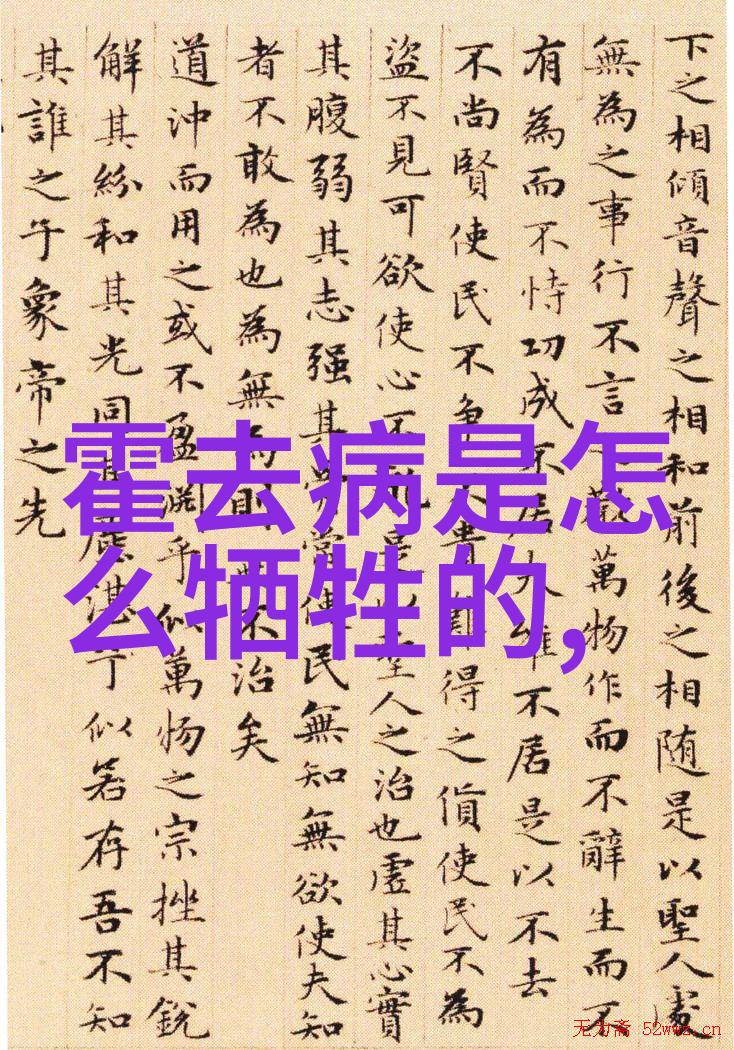 霍去病是怎
么牺牲的,
下之相傾音聲之相和前後之相随是以聖人處
無為之事行不言教萬物作而不辭生而不
有為而不恃功成不居夫唯不居是以不去
不尚賢使民不争不貴得之貨使民不為
盜不見可欲使心不亂是以聖人之治也虛其心實
其腹弱其志强其常使民無知無欲使夫知
者不敢為也為無為則不治矣
道沖而用之或不盈渊乎似萬物之宗挫其銳
解其紛和其光同其塵湛乎似若存吾不知
其誰之子象帝之先
无为斋 52wwz.cn